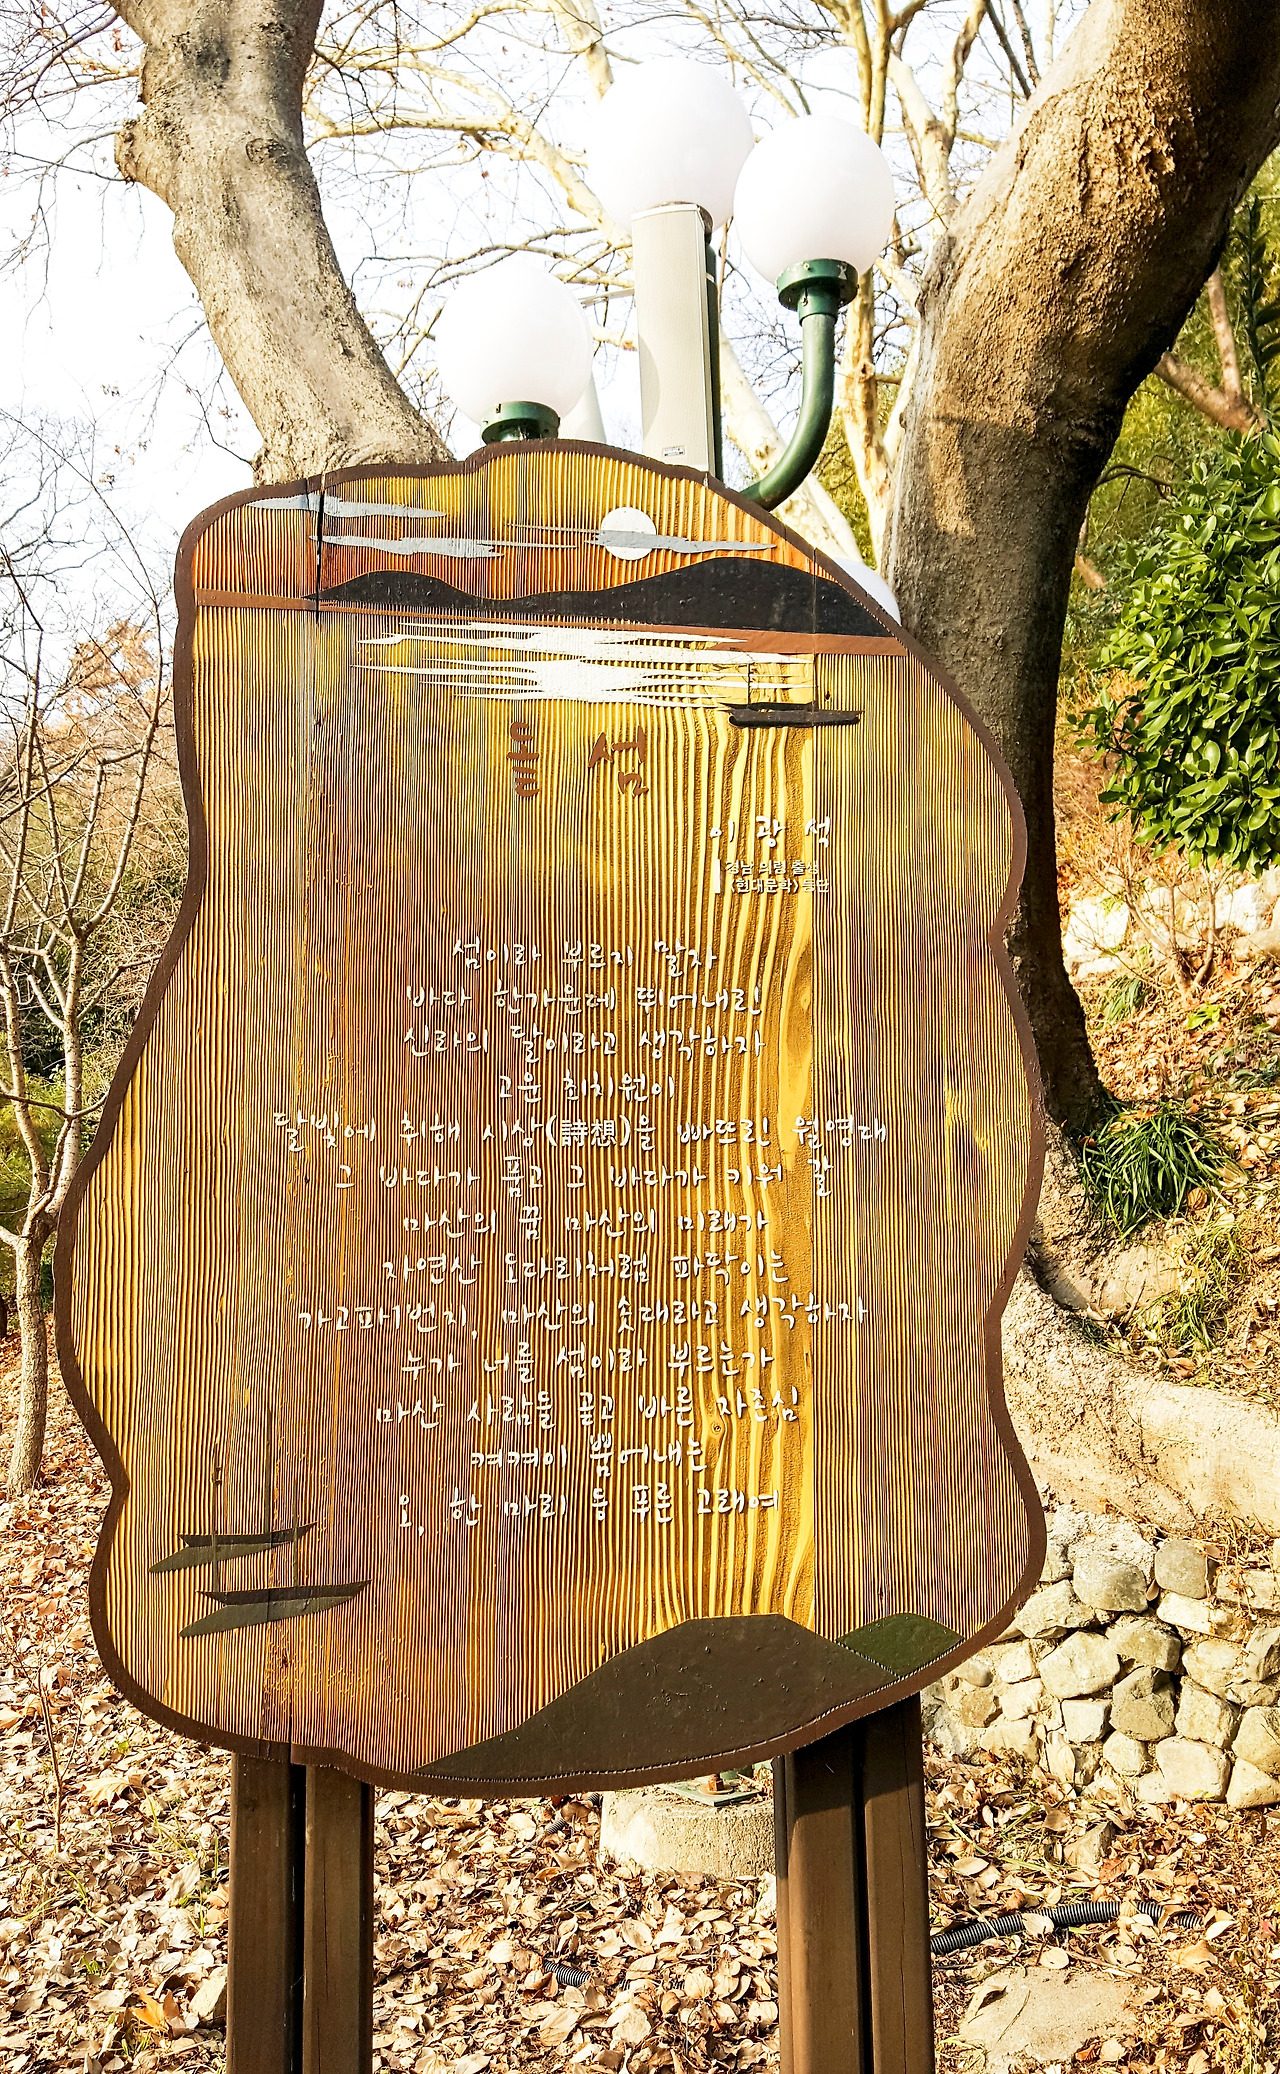 돝 섬
이 광 석
경남 의령 출신
<현대문학> 등단
섬이라 부르지 말자
바다 한가운데 뛰어내린
신라의 달이라고 생각하자
고운 최치원이
달빛에 취해 시상(詩想)을 빠뜨린 월영대
그 바다가 품고 그 바다가 키워 갈
마산의 꿈 마산의 미래가
자연산 도다리처럼 파닥이는
가고파1번지, 마산의 솟대라고 생각하자
누가 너를 섬이라 부르는가
마산 사람들 곧고 바른 자존심
켜켜이 뿜어내는
오, 한 마리 등 푸른 고래여